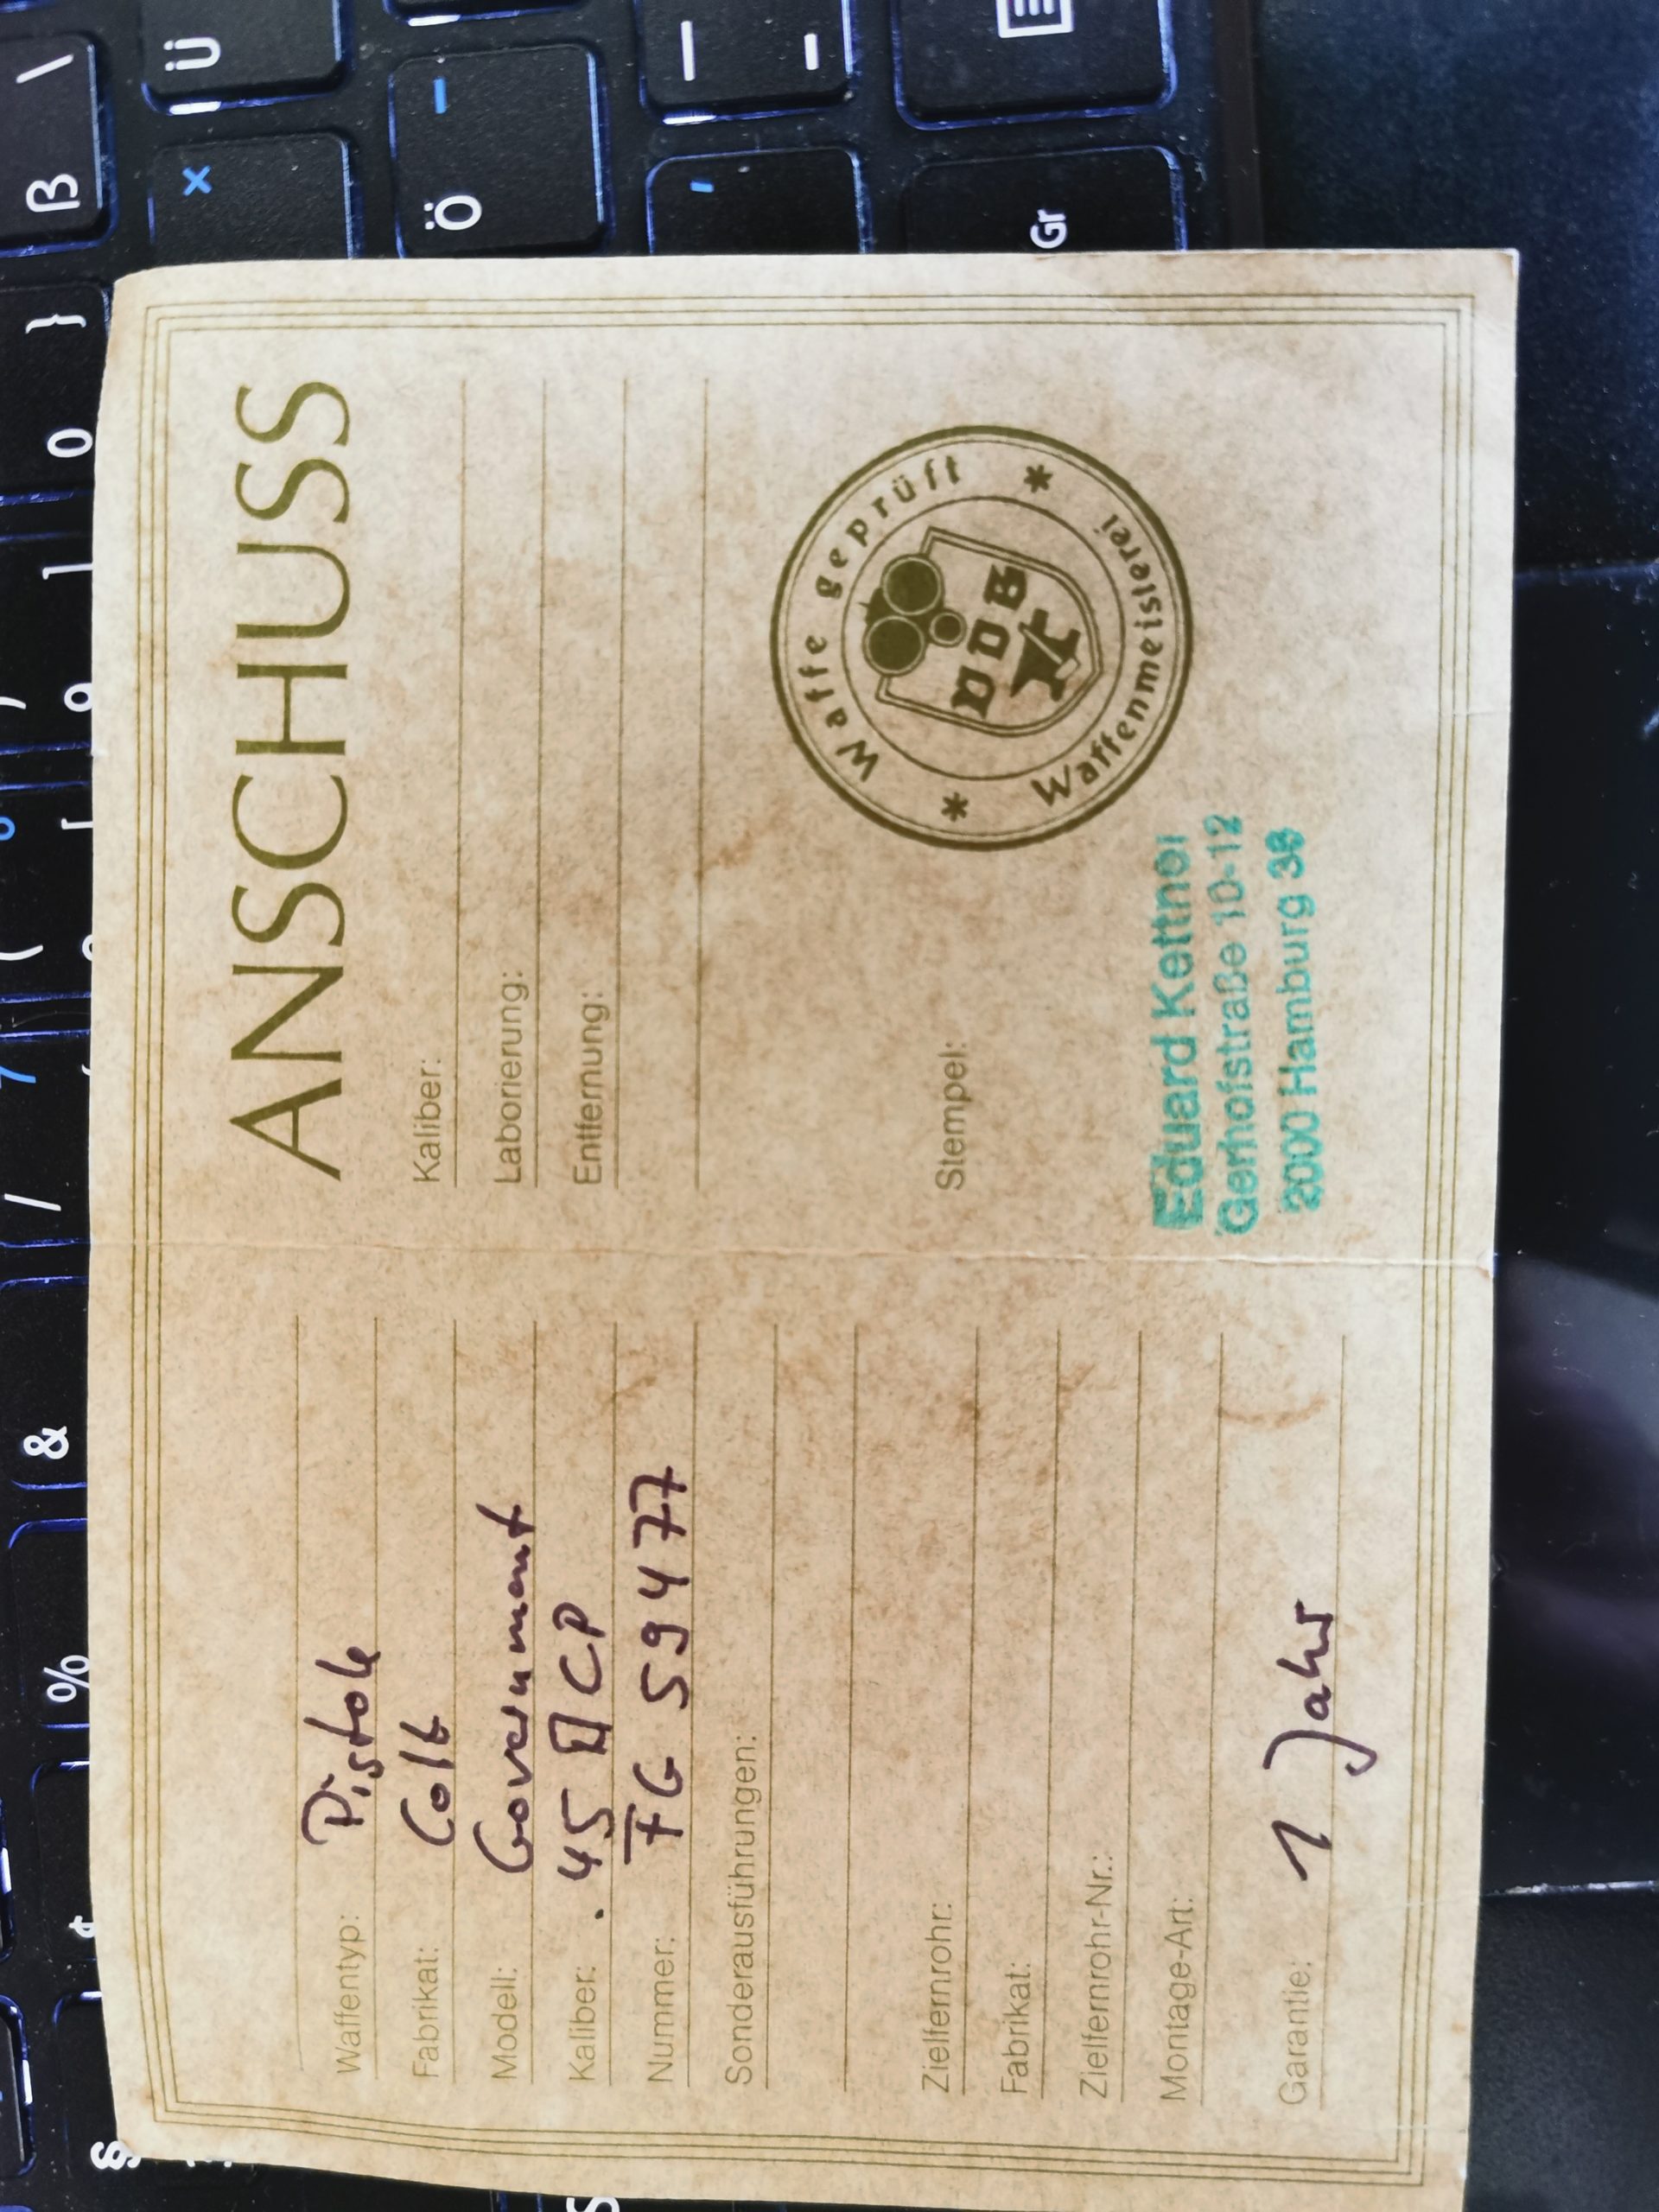 Waffentyp: Pistole
Fabrikat: Colt
Modell: Government
Kaliber: .45 ACP
Nummer: FG 59477
Sonderausführungen:
Zielfernrohr:
Fabrikat:
Zielfernrohr-Nr.:
Montage-Art:
Garantie: 1 Jahr
ANSCHUSS
Kaliber:
Laborierung:
Entfernung:
Stempel:
Waffe geprüft
* Waffenmeisterei *
Eduard Kettner
Gerhofstraße 10-12
2000 Hamburg 36
§
%
&
/
(
7
[
]
0
}
ß
\
Ü
Ö
Gr